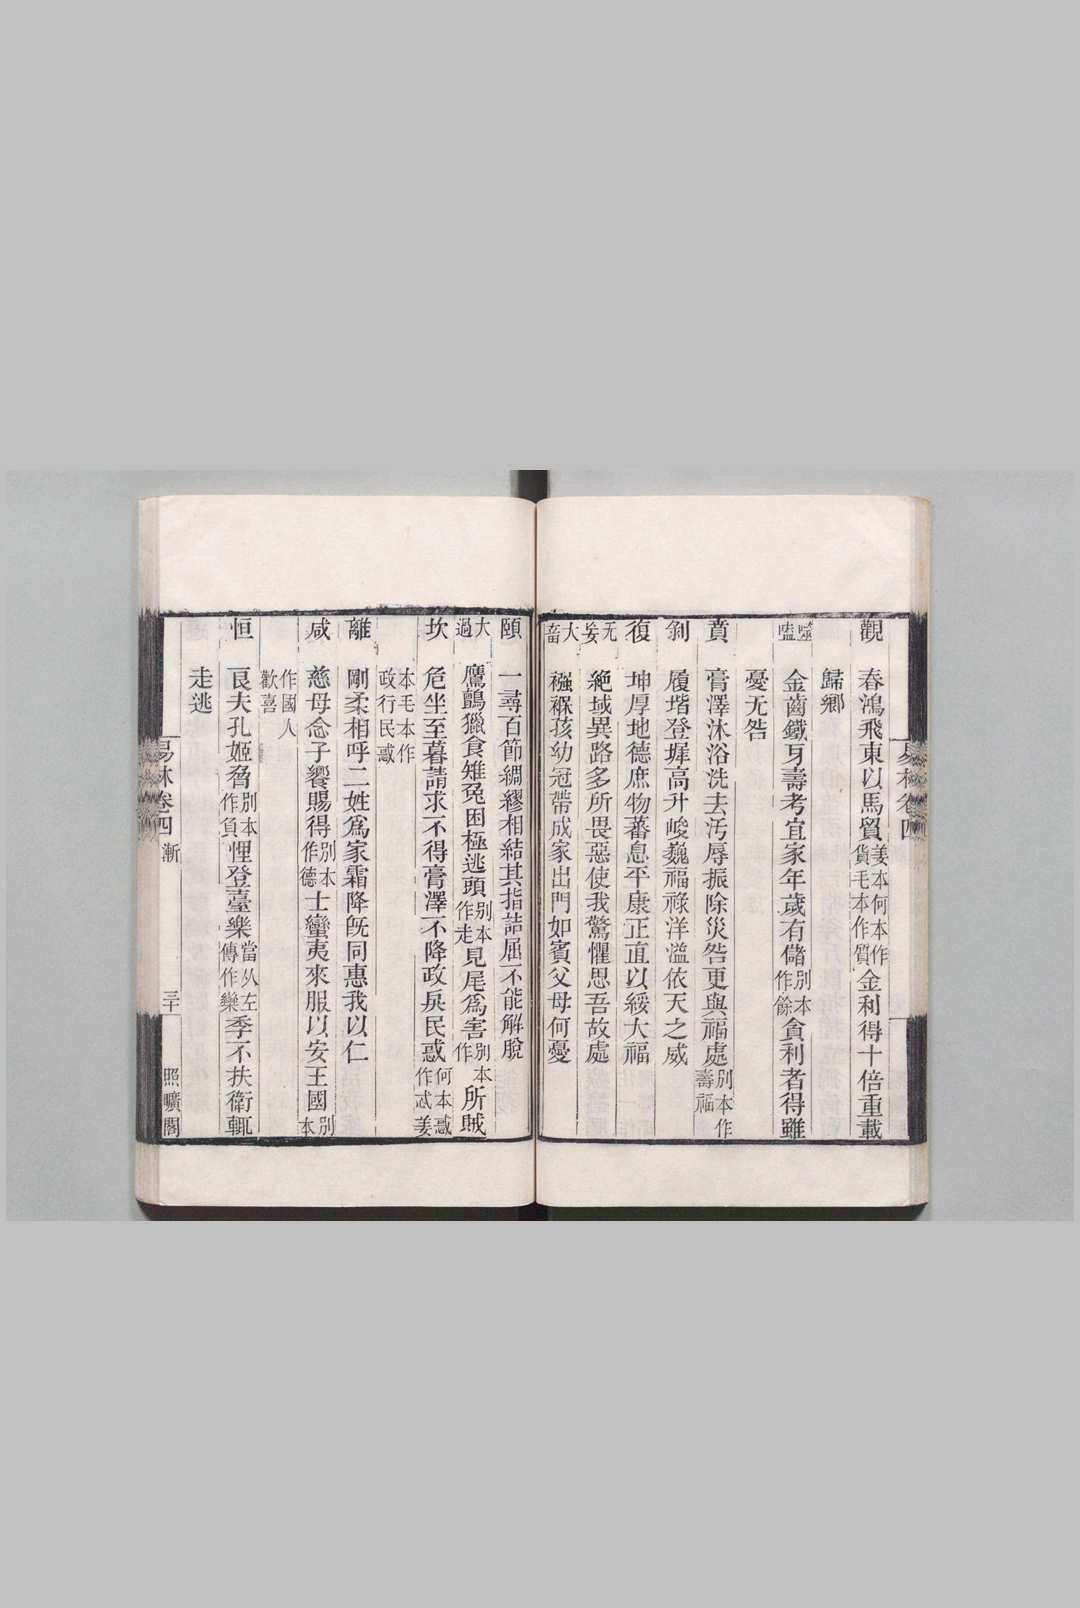 觀 春鴻飛東以馬貿姜本何本作貨毛本作質金利得十倍重載
歸鄉
噬嗑 金齒鐵牙壽考宜家年歲有儲別本作餘貪利者得雖
憂无咎
賁 膏澤沐浴洗去汚辱振除災咎更與福處別本作壽福
剝 履堦登墀高升峻巍福祿洋溢依天之威
復 坤厚地德庶物蕃息平康正直以綏大福
无妄 絶域異路多所畏惡使我驚懼思吾故處
大畜 襁褓孩幼冠帶成家出門如賓父母何憂
頤 一尋百節綢繆相結其指詰屈不能解脫
大過 鷹鸇獵食雉兔困極逃頭別本作走見尾爲害別本作所賊
坎 危坐至暮請求不得膏澤不降政戾民惑何本惑作忒姜
本毛本作政行民惑
離 剛柔相呼二姓爲家霜降旣同惠我以仁
咸 慈母念子饗賜得別本作德士蠻夷來服以安王國別本
作國人歡喜
恒 良夫孔姬脅別本作負悝登臺樂當从左傳作欒季不扶衛輒
走逃
易林卷四 漸 三十 照曠閣